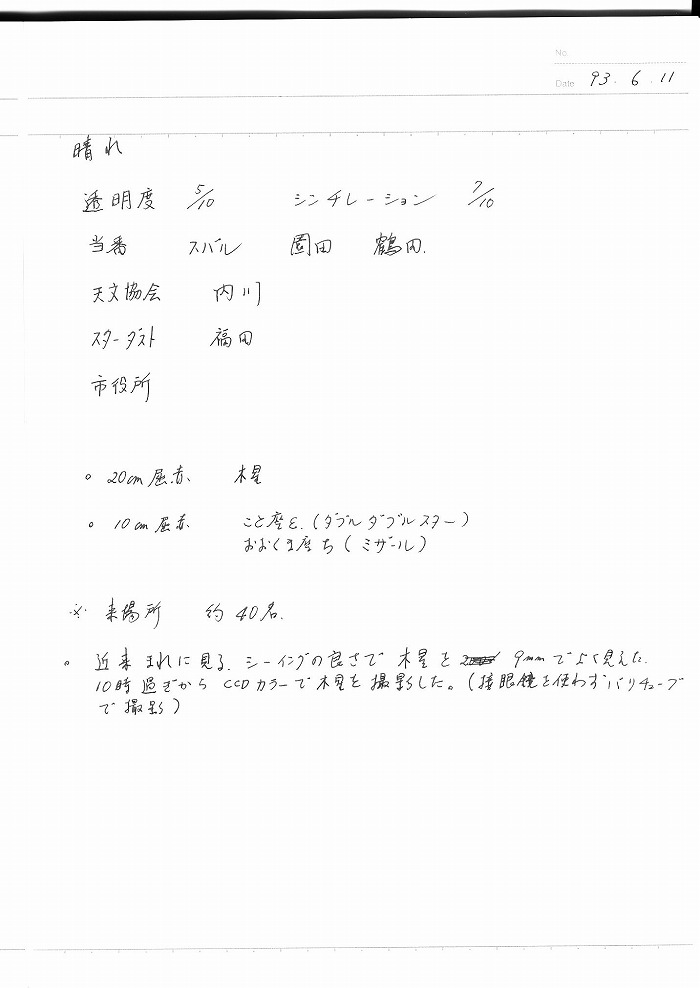 No.
Date 93. 6. 11
晴れ
透明度 5/10 シンチレーション 7/10
当番 スバル 園田 鶴田.
天文協会 内川
スターダスト 福田
市役所
○ 20cm屈赤 木星
○ 10cm屈赤 こと座ε.(ダブルダブルスター)
おおくま座ち(ミザール)
※ 来場所 約40名.
○ 近来まれに見る.シーイングの良さで木星を 9mmでよく見えた.
10時過ぎから CCDカラーで木星を撮影した。(接眼鏡を使わずバリチューブ
で撮影)